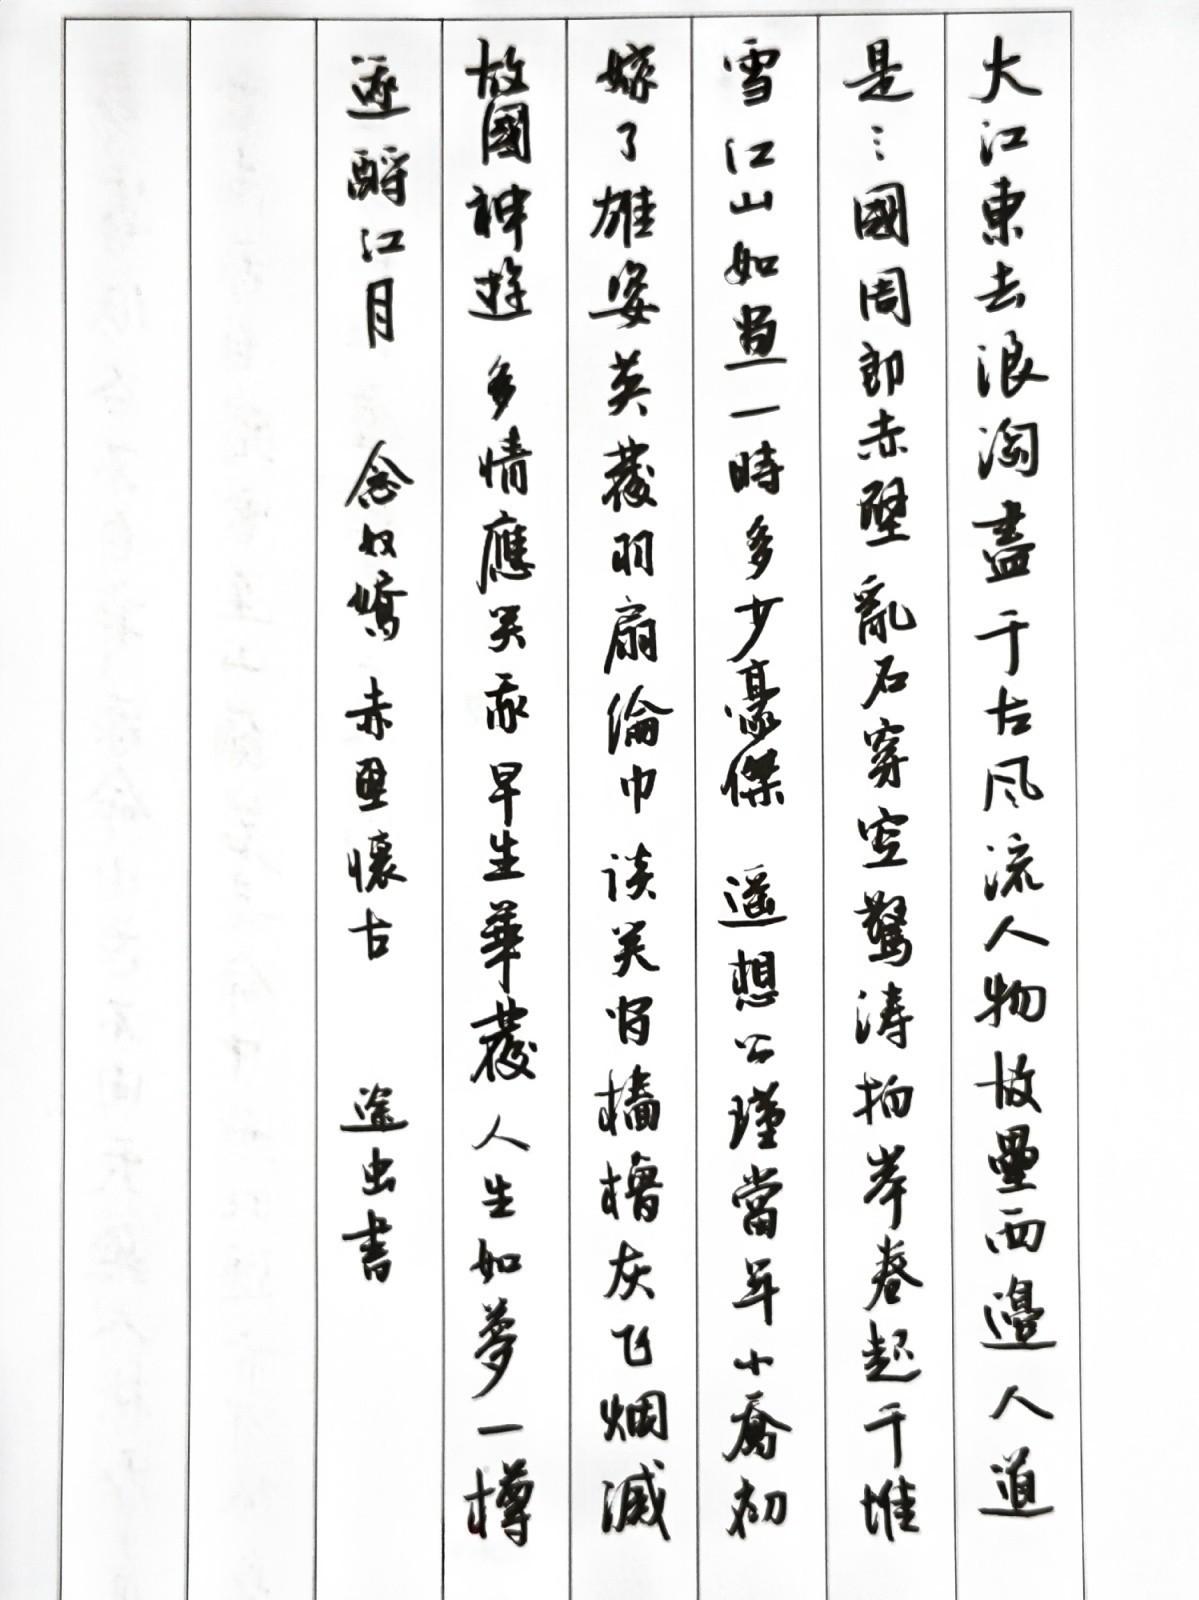 大江東去浪淘盡千古風流人物故壘西邊人道
是三國周郎赤壁亂石穿空驚涛拍岸卷起千堆
雪江山如畫一時多少豪傑遥想公瑾當年小喬初
嫁了雄姿英發羽扇綸巾談笑間檣櫓灰飞烟滅
故國神遊多情應笑我早生華髮人生如夢一樽
還酹江月 念奴嬌赤壁懷古 途虫書